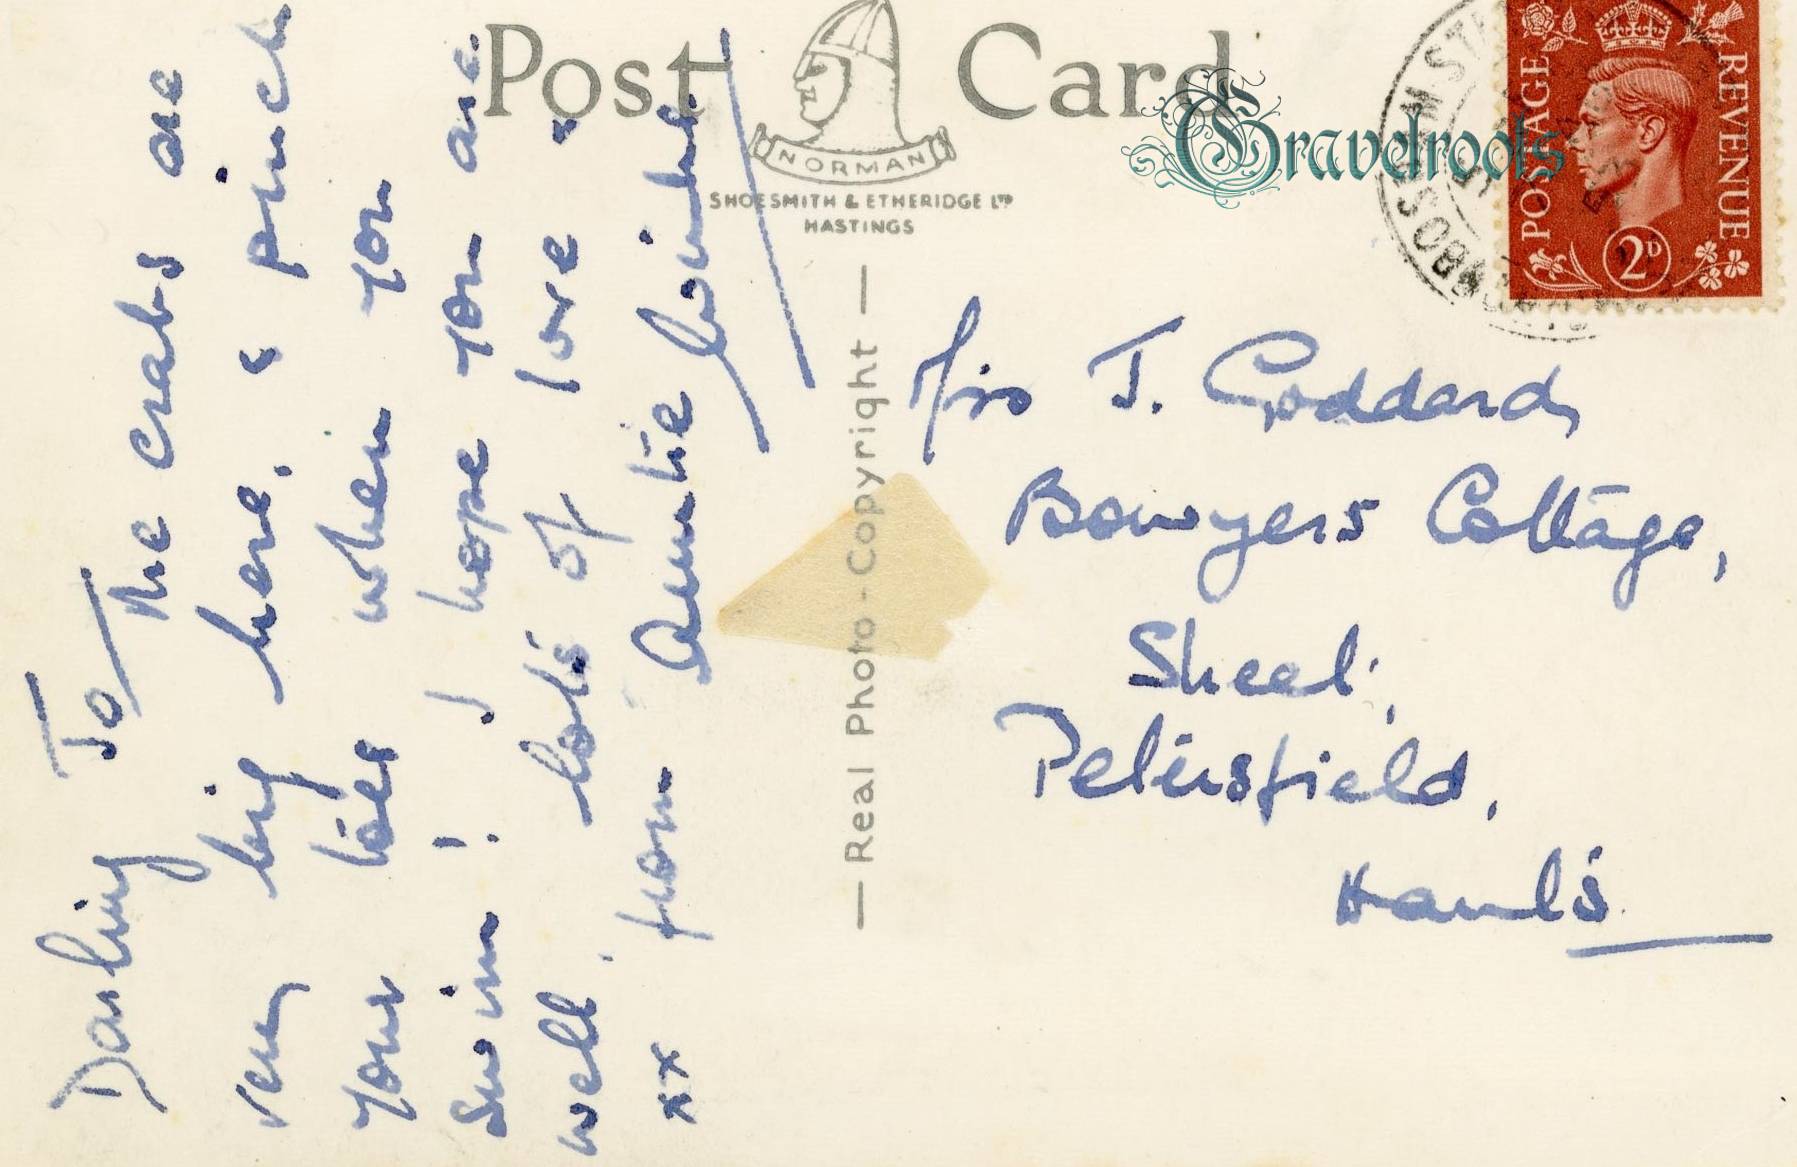 Post Card
NORMAN
SHOESMITH & ETHERIDGE LTD
HASTINGS
Gravelroots
POSTAGE
REVENUE
2D
BOSHAM
Real Photo - Copyright
Darling Jo
The crabs are
very big here, & pinch
your toes when you
swim! I hope you are
well, lots of love &
xx from Auntie
J. Goddard,
Bowyers Cottage,
Sheet,
Petersfield,
Hants